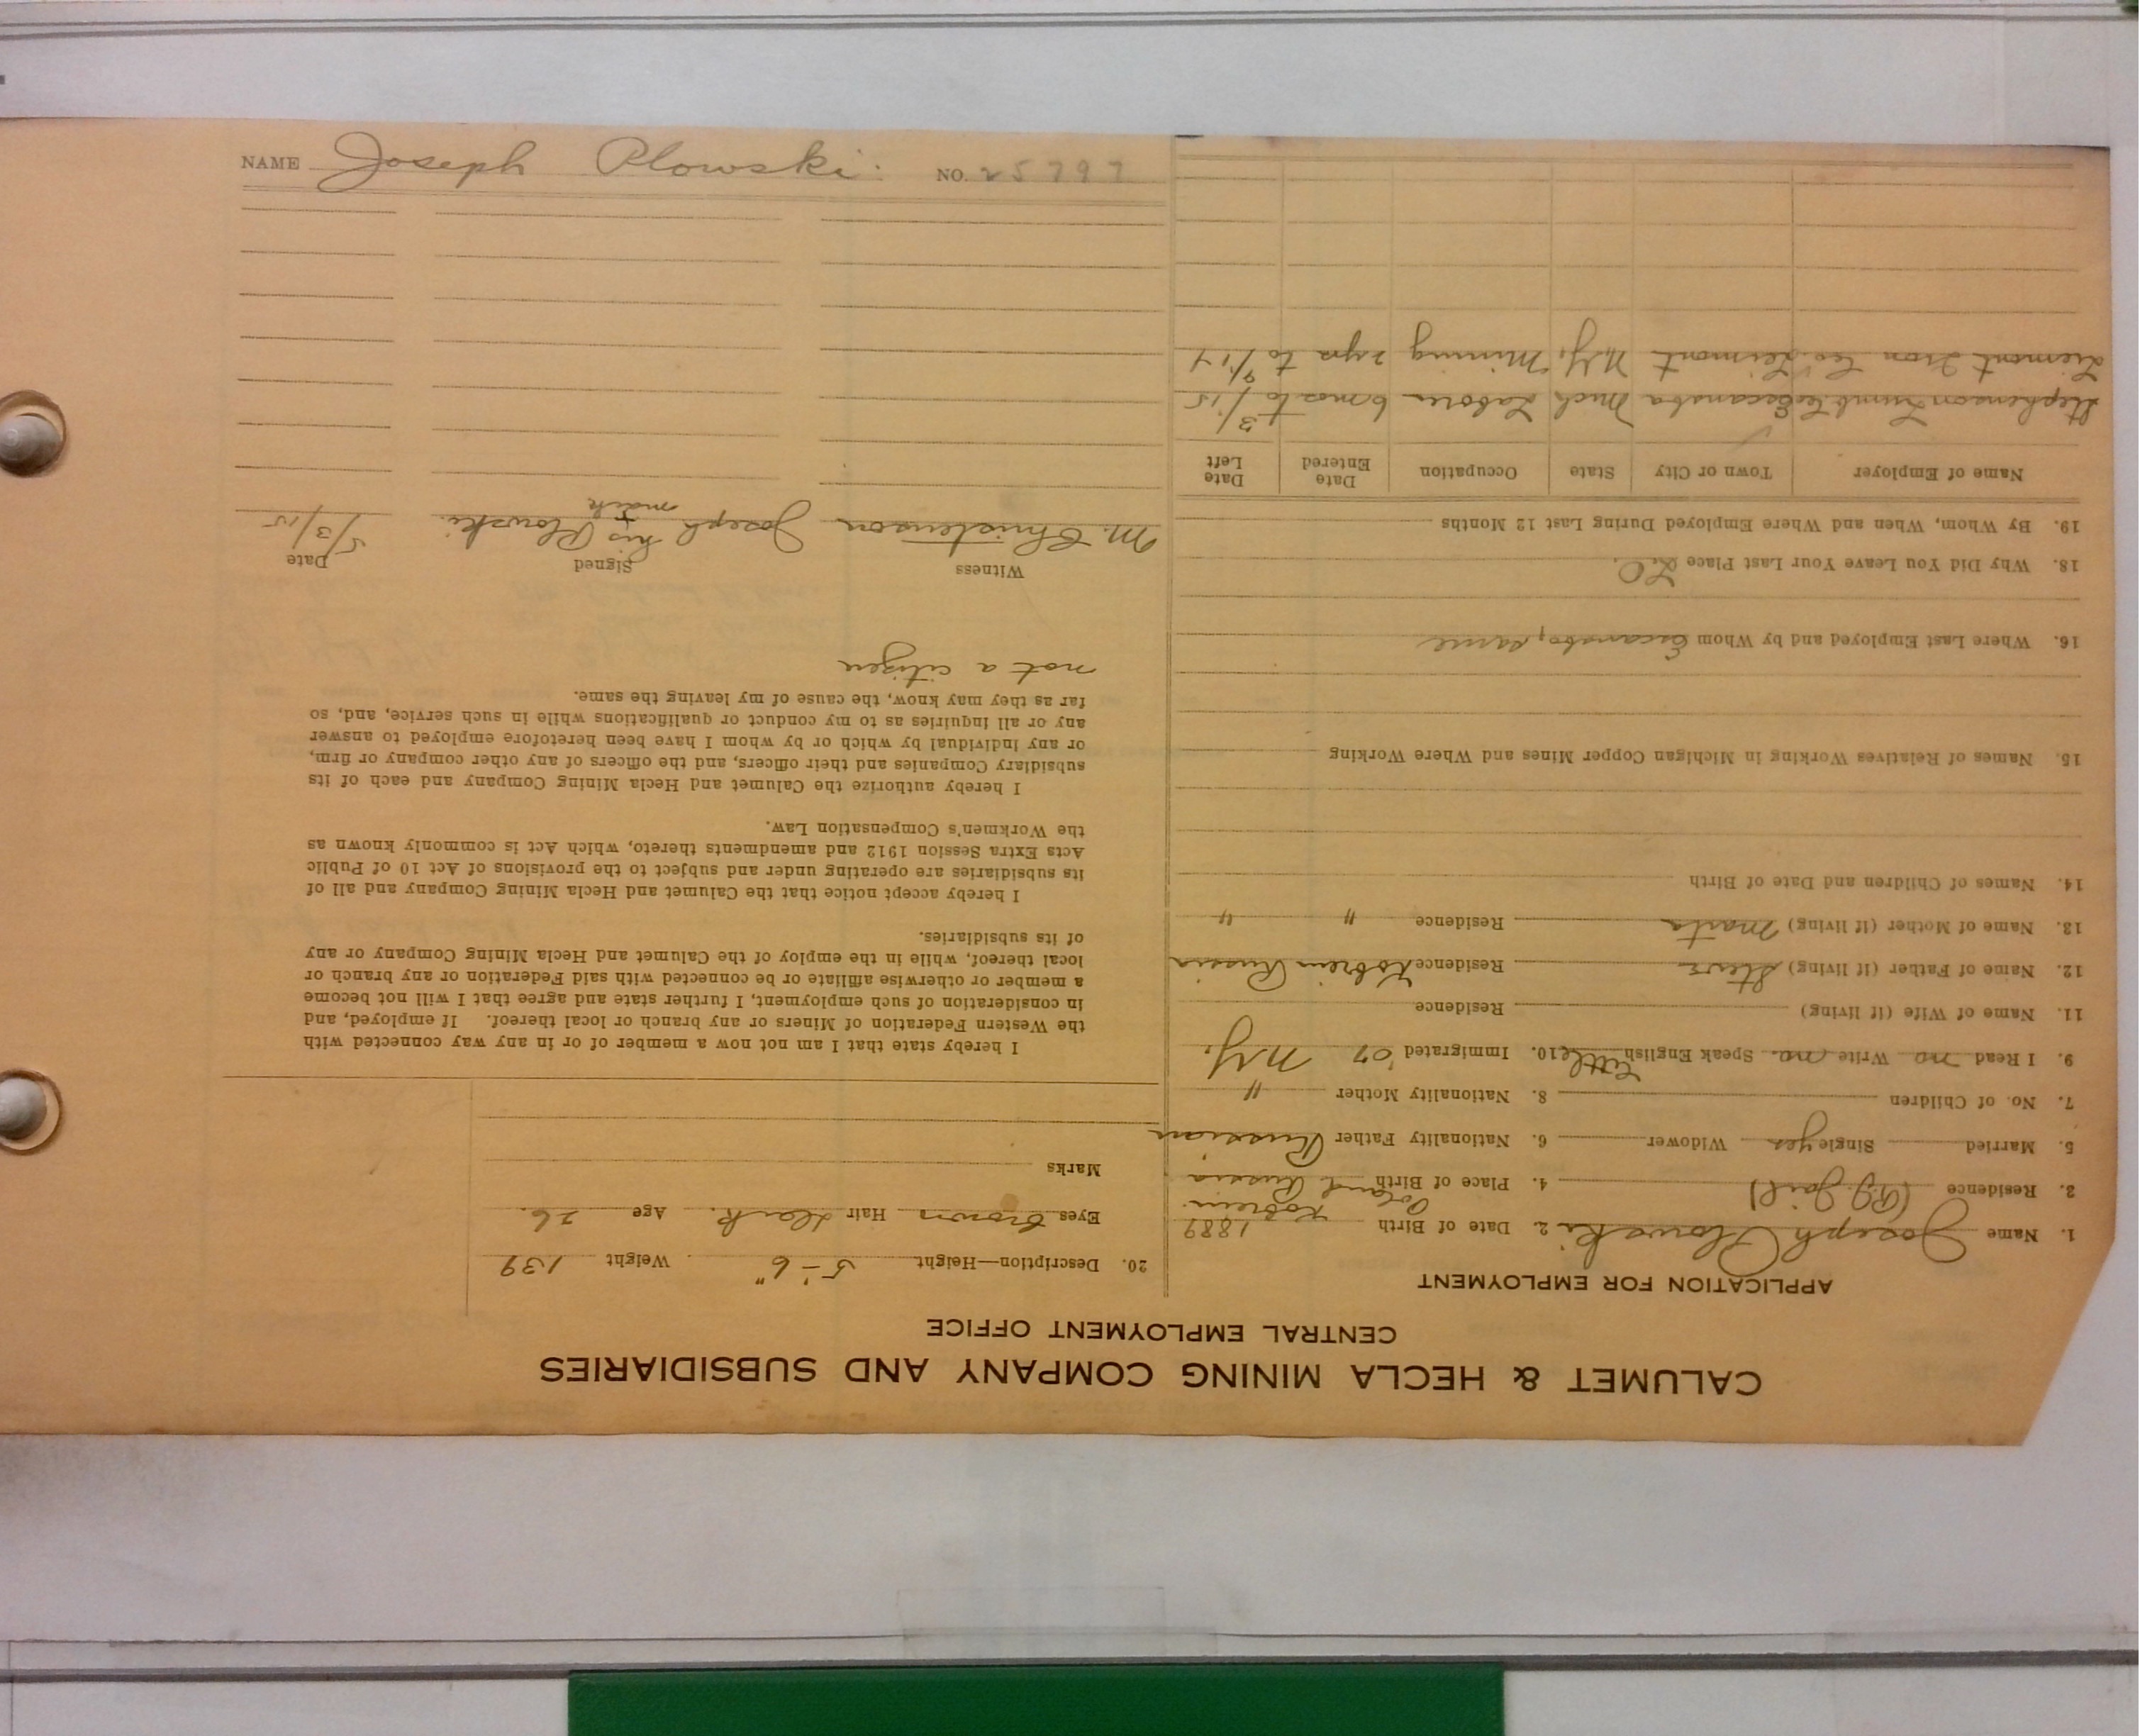 CALUMET & HECLA MINING COMPANY AND SUBSIDIARIES
CENTRAL EMPLOYMENT OFFICE
APPLICATION FOR EMPLOYMENT
1. Name Joseph Plowski 2. Date of Birth 1889
Kobrin
3. Residence (R.J. Jail) 4. Place of Birth Poland Russia
5. Married Single yes Widower 6. Nationality Father Russian
7. No. of Children 8. Nationality Mother "
9. I Read no Write no. Speak English Little 10. Immigrated '07 N.Y.
11. Name of Wife (if living) Residence
12. Name of Father (if living) Steve Residence Kobrin Russia
13. Name of Mother (if living) Marta Residence " "
14. Names of Children and Date of Birth
15. Names of Relatives Working in Michigan Copper Mines and Where Working
16. Where Last Employed and by Whom Escanaba, same
18. Why Did You Leave Your Last Place
19. By Whom, When and Where Employed During Last 12 Months
Name of Employer Town or City State Occupation Date Entered Date Left
Stephenson Lumb Co Escanaba Mich Labore 6 mos to 3/15
Iron Co. N.Y. Minning 2 yrs to 9/14
20. Description—Height 5'-6" Weight 139
Eyes brown Hair dark. Age 26.
Marks
I hereby state that I am not now a member of or in any way connected with
the Western Federation of Miners or any branch or local thereof. If employed, and
in consideration of such employment, I further state and agree that I will not become
a member or otherwise affiliate or be connected with said Federation or any branch or
local thereof, while in the employ of the Calumet and Hecla Mining Company or any
of its subsidiaries.
I hereby accept notice that the Calumet and Hecla Mining Company and all of
its subsidiaries are operating under and subject to the provisions of Act 10 of Public
Acts Extra Session 1912 and amendments thereto, which Act is commonly known as
the Workmen's Compensation Law.
I hereby authorize the Calumet and Hecla Mining Company and each of its
subsidiary Companies and their officers, and the officers of any other company or firm,
or any individual by which or by whom I have been heretofore employed to answer
any or all inquiries as to my conduct or qualifications while in such service, and, so
far as they may know, the cause of my leaving the same.
not a citizen
Witness Signed Date
M. Christenson Joseph his Plowski. 5/3/15
mark
NAME Joseph Plowski. NO. 25797